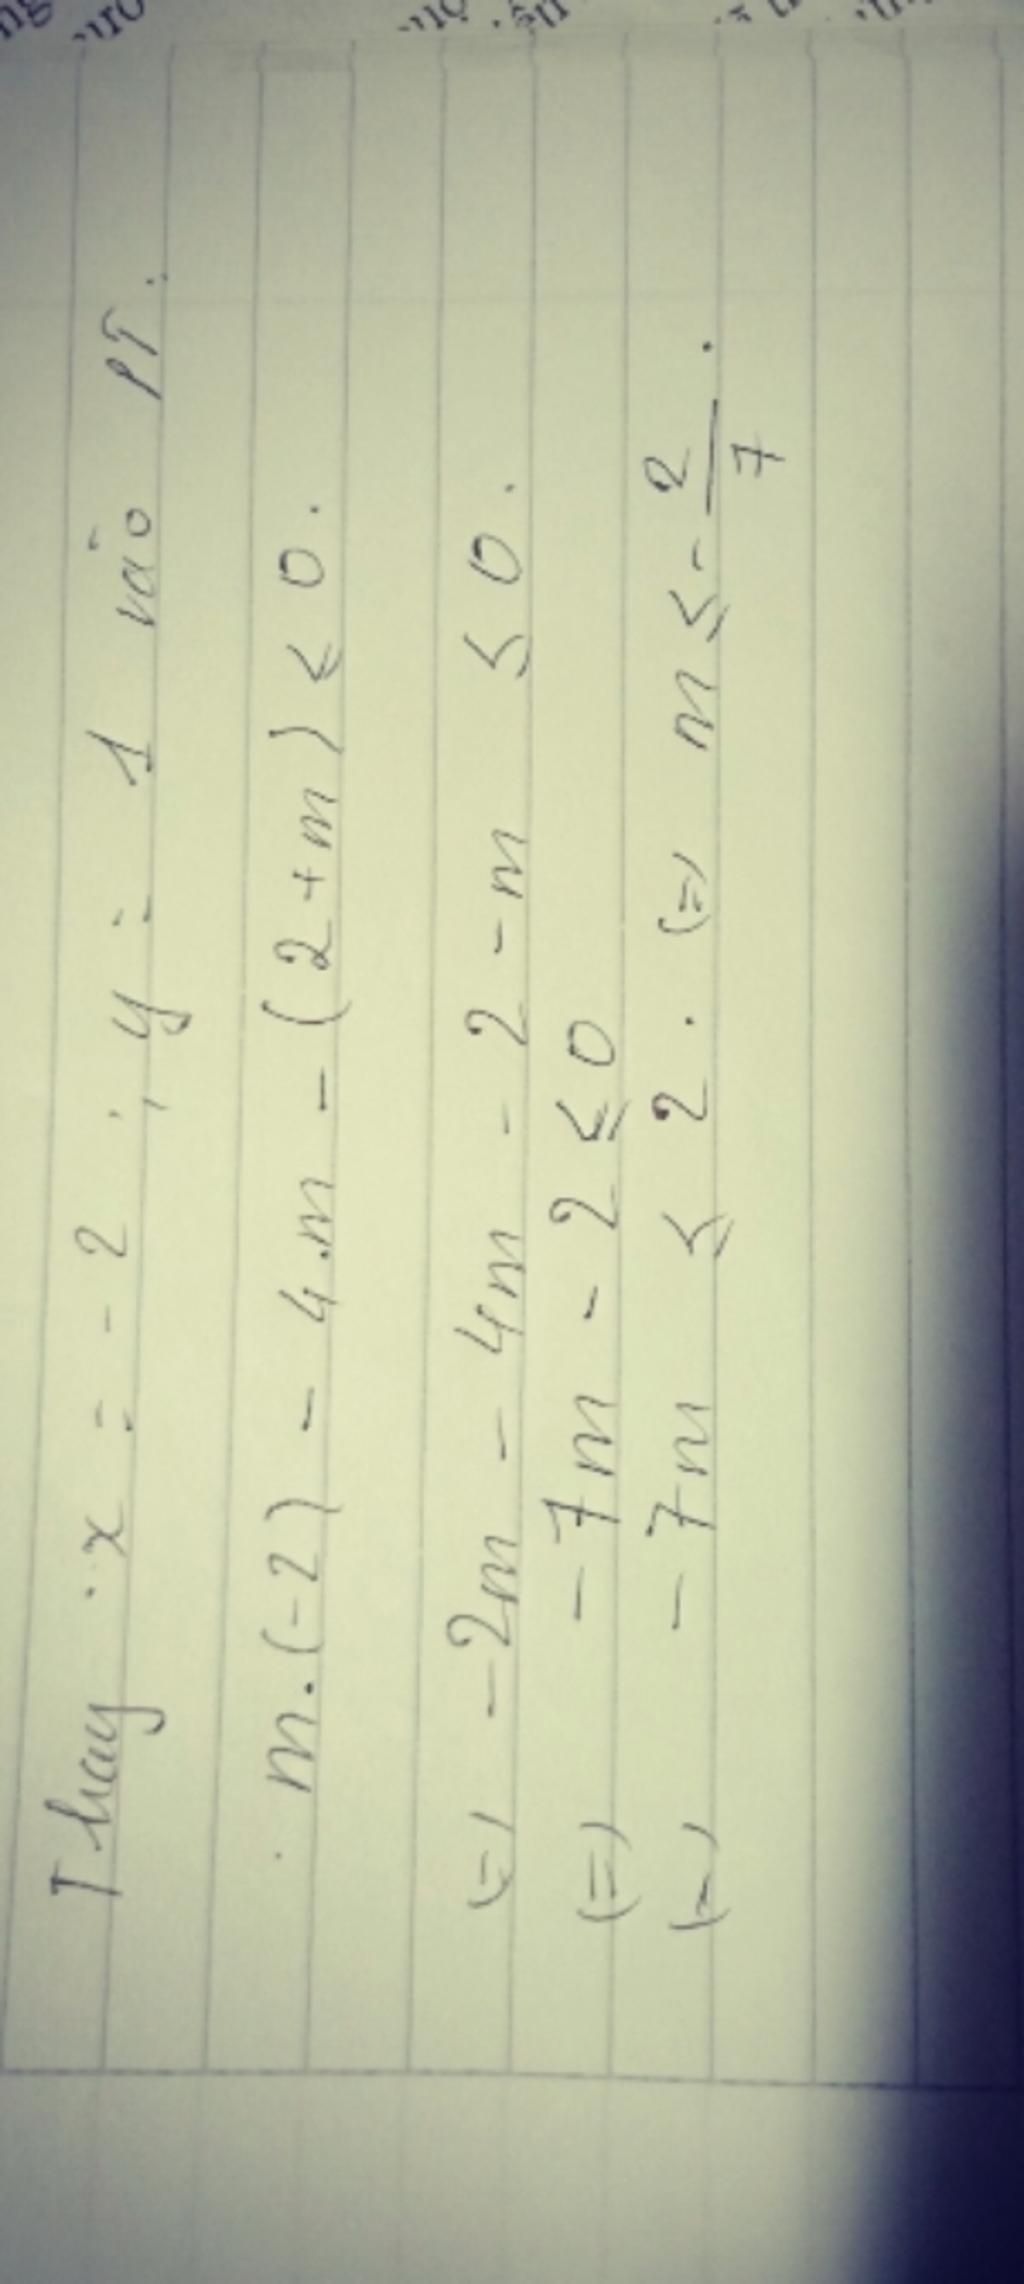 Thay x = - 2 ; y = 1 vào PT.
m.(-2) - 4.m - (2+m) ≤ 0.
(=) -2m - 4m - 2 - m ≤ 0.
(=) - 7m - 2 ≤ 0
(=) - 7m ≤ 2. (=) m ≤ - 2/7.